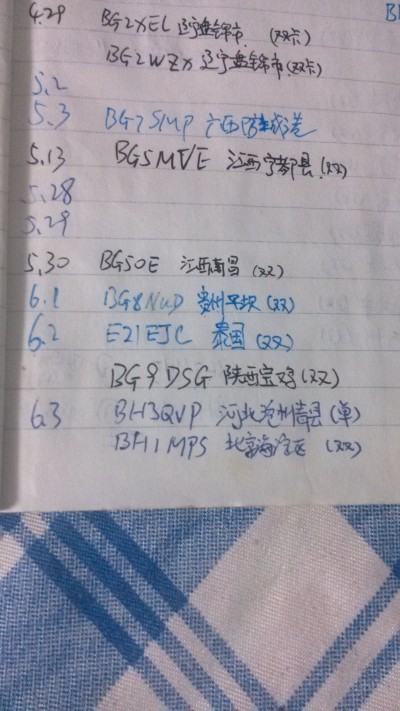 4.29 BG2XEL 辽宁盘锦市. (双卡)
BG2WZX 辽宁盘锦市(双卡)
5.2
5.3 BG7SMP 广西防城港
5.13 BG5MVE 江西宁都县.(双)
5.28
5.29
5.30 BG5OE 江西南昌 (双)
6.1 BG8NUD 贵州平坝 (双)
6.2 E21EJC 泰国 (双)
BG9DSG 陕西宝鸡(双)
6.3 BH3QVP 河北沧州青县(单)
BH1MPS 北京海淀区 (双)
B